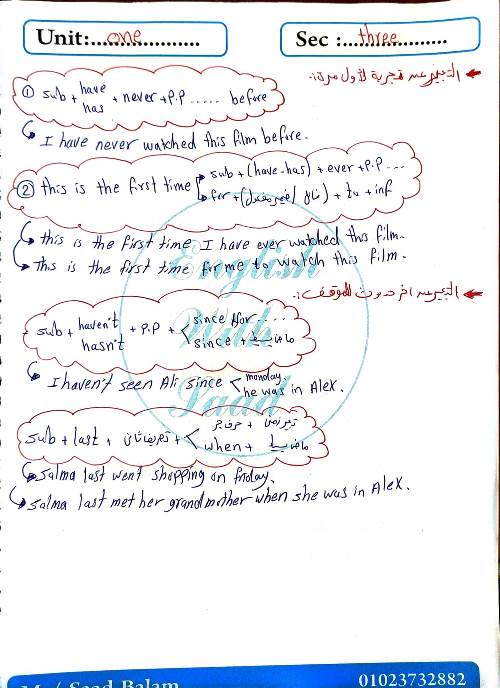 Unit:...one...................
Sec :...three...................
التعبير عن تجربة لأول مرة:-
① sub + have has + never + P.P ..... before
I have never watched this film before.
② this is the first time sub + (have-has) + ever + P.P ...
for + (فاعل / مفعول) + to + inf
this is the first time I have ever watched this film.
This is the first time for me to watch this film.
التعبير عن آخر حدوث للموقف:-
sub + haven't hasn't + P.P + since/for......
since + ماضى بسيط
I haven't seen Ali since monday
he was in Alex.
sub + last + تصريف ثان + حرف جر + تعبير زمنى
when + ماضى بسيط
Salma last went shopping on friday.
Salma last met her grandmother when she was in Alex.
English
With
Saad
Mr / Saad Balam
01023732882